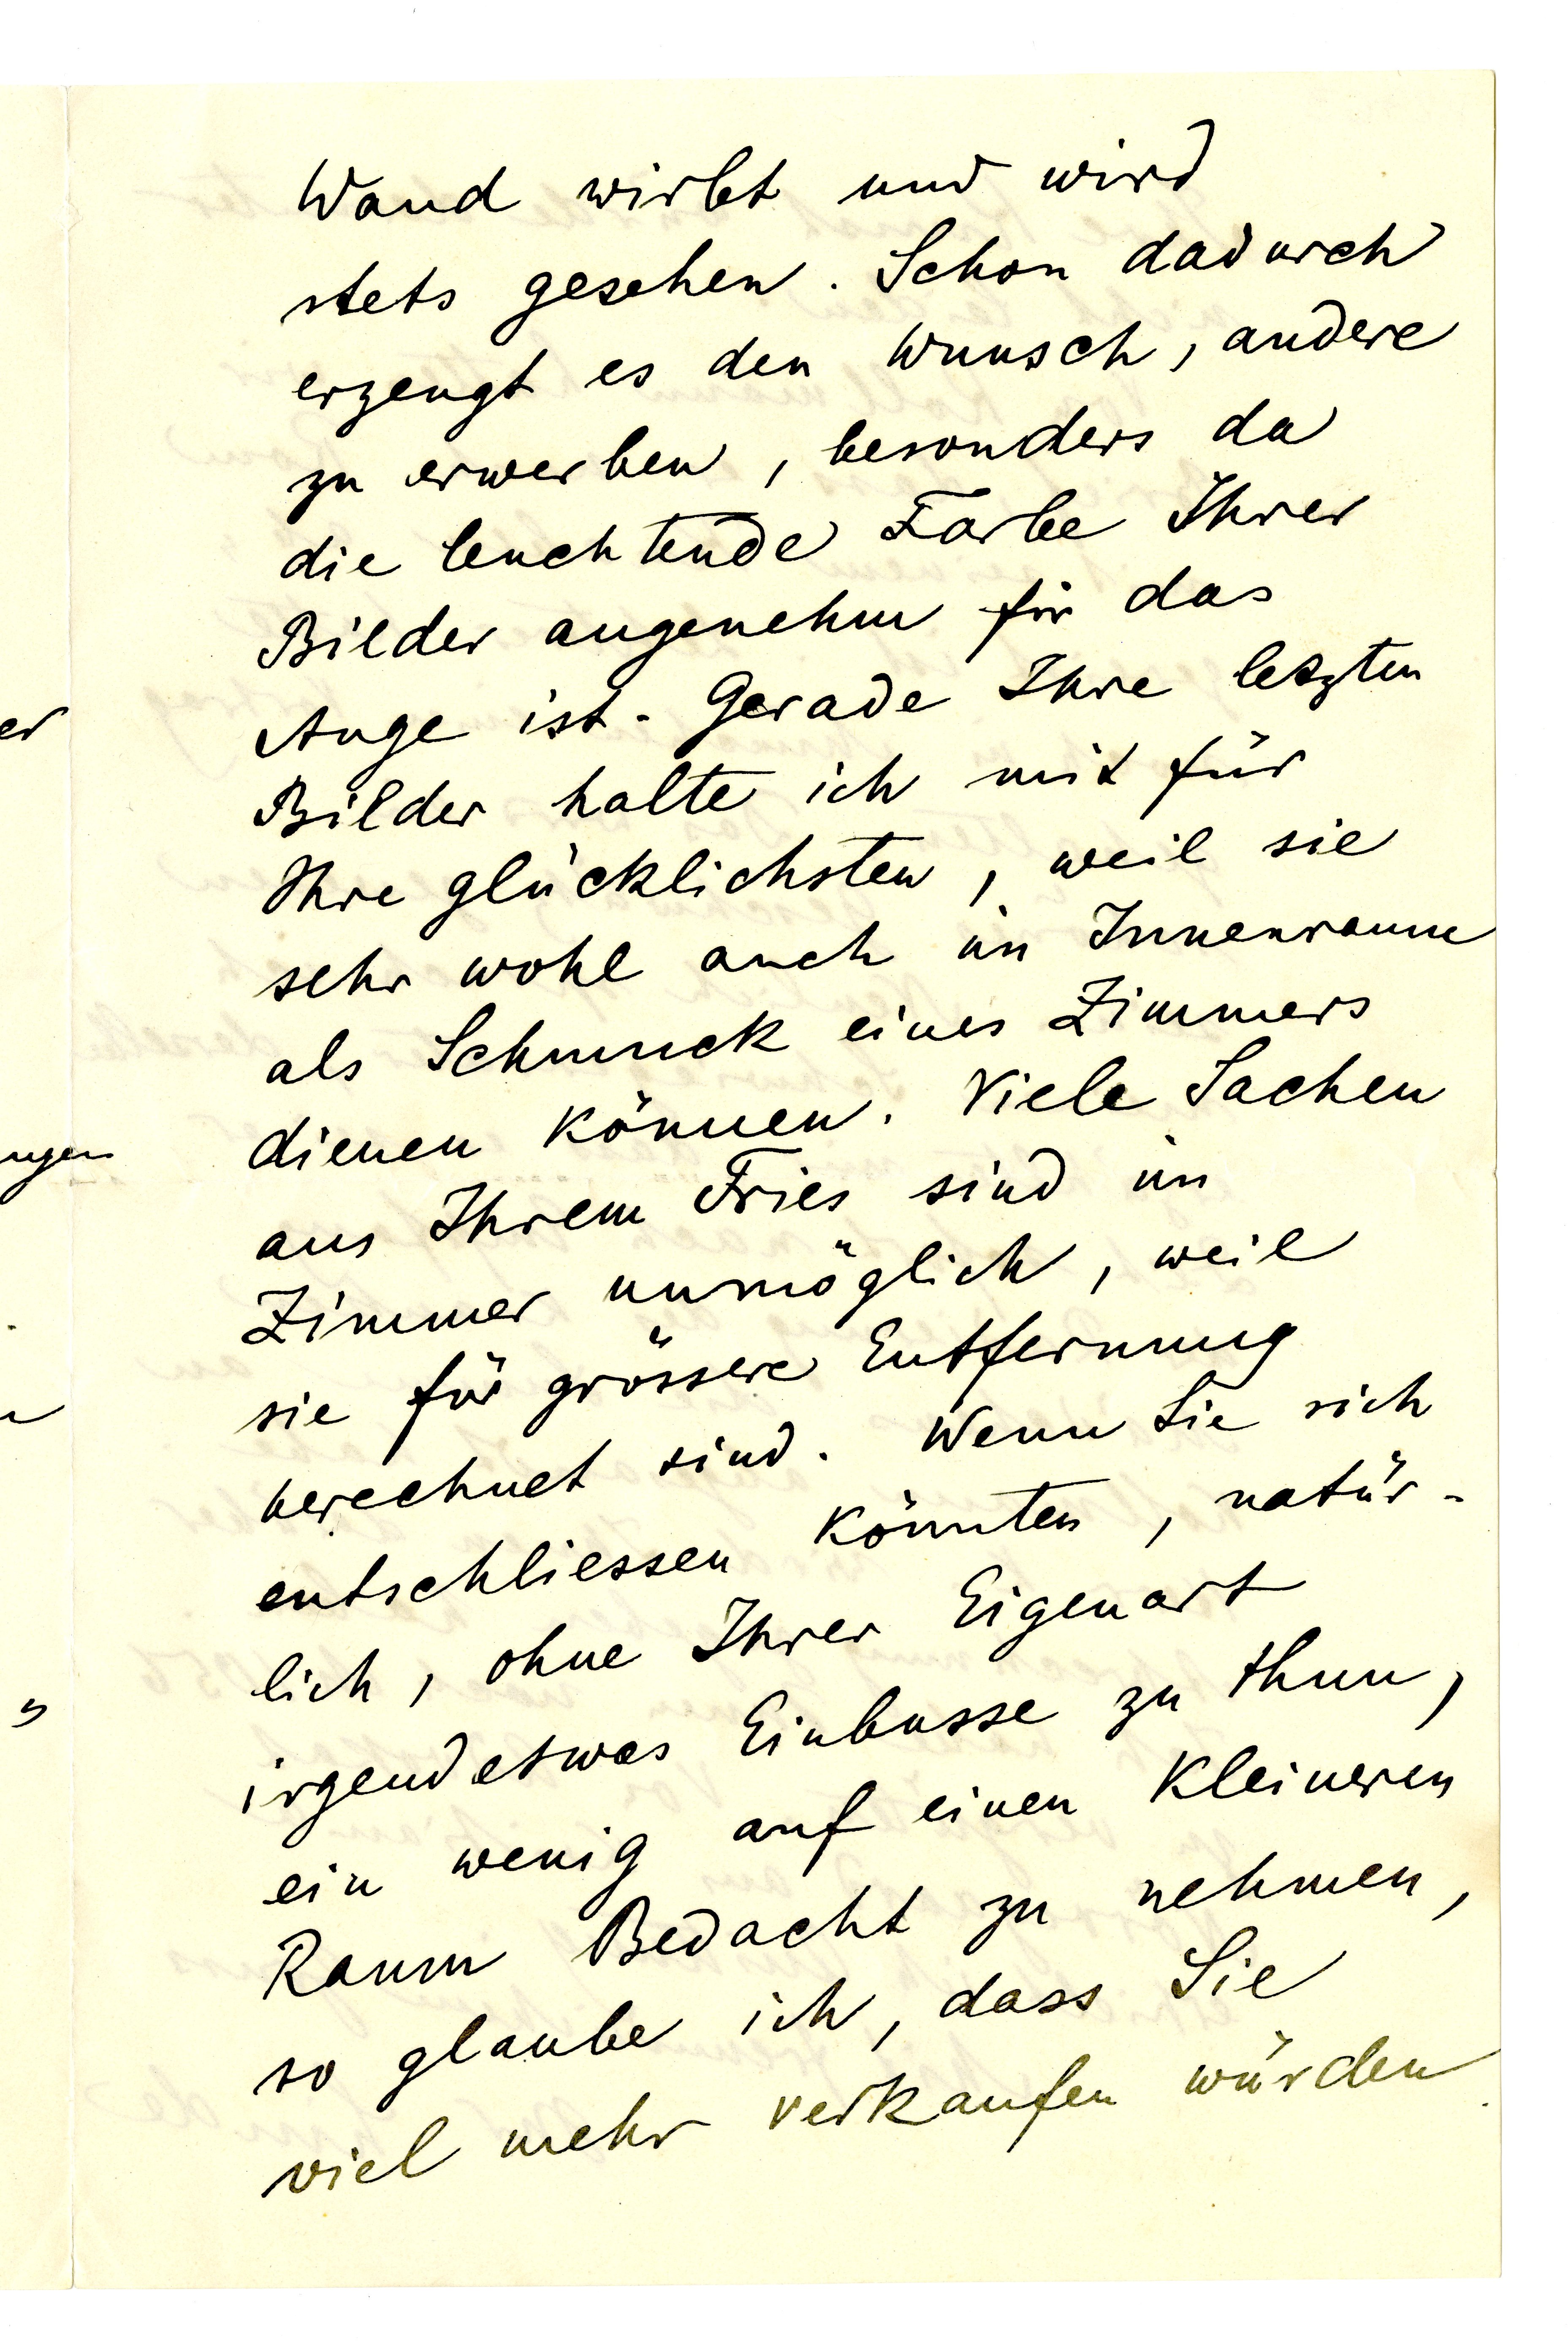 Wand wirbt und wird
stets gesehen. Schon dadurch
erzeugt es den Wunsch, andere
zu erwerben, besonders da
die leuchtende Farbe Ihrer
Bilder angenehm für das
Auge ist. Gerade Ihre letzten
Bilder halte ich mit für
Ihre glücklichsten, weil sie
sehr wohl auch im Innenraume
als Schmuck eines Zimmers
dienen können. Viele Sachen
aus Ihrem Fries sind im
Zimmer unmöglich, weil
sie für grössere Entfernung
berechnet sind. Wenn Sie sich
entschliessen könnten, natür-
lich, ohne Ihrer Eigenart
irgendetwas Einbusse zu thun,
ein wenig auf einen kleineren
Raum Bedacht zu nehmen,
so glaube ich, dass Sie
viel mehr verkaufen würden